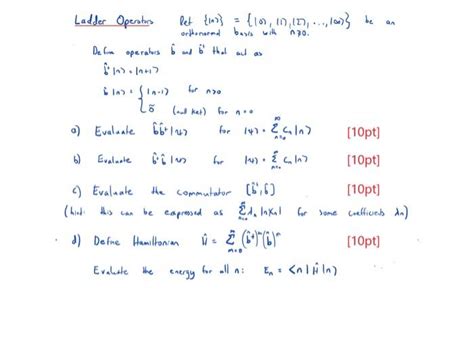 Ladder Operators Let {|n⟩} = {|0⟩, |1⟩, |2⟩, ..., |∞⟩} be an
orthonormal basis with n≥0.
Define operators b̂ and b̂† that act as
b̂†|n⟩ = |n+1⟩
b̂|n⟩ = { |n-1⟩ for n>0
0̃ (null ket) for n=0
a) Evaluate b̂b̂†|ψ⟩ for |ψ⟩ = Σ_{n=0}^{∞} cₙ|n⟩ [10pt]
b) Evaluate b̂†b̂|ψ⟩ for |ψ⟩ = Σ_{n=0}^{∞} cₙ|n⟩ [10pt]
c) Evaluate the commutator [b̂†, b̂] [10pt]
(hint: this can be expressed as Σ_{n=0}^{∞} λₙ|n⟩⟨n| for some coefficients λₙ)
d) Define Hamiltonian Ĥ = Σ_{m=0}^{∞} (b̂†)^m (b̂)^m [10pt]
Evaluate the energy for all n: Eₙ = ⟨n|Ĥ|n⟩